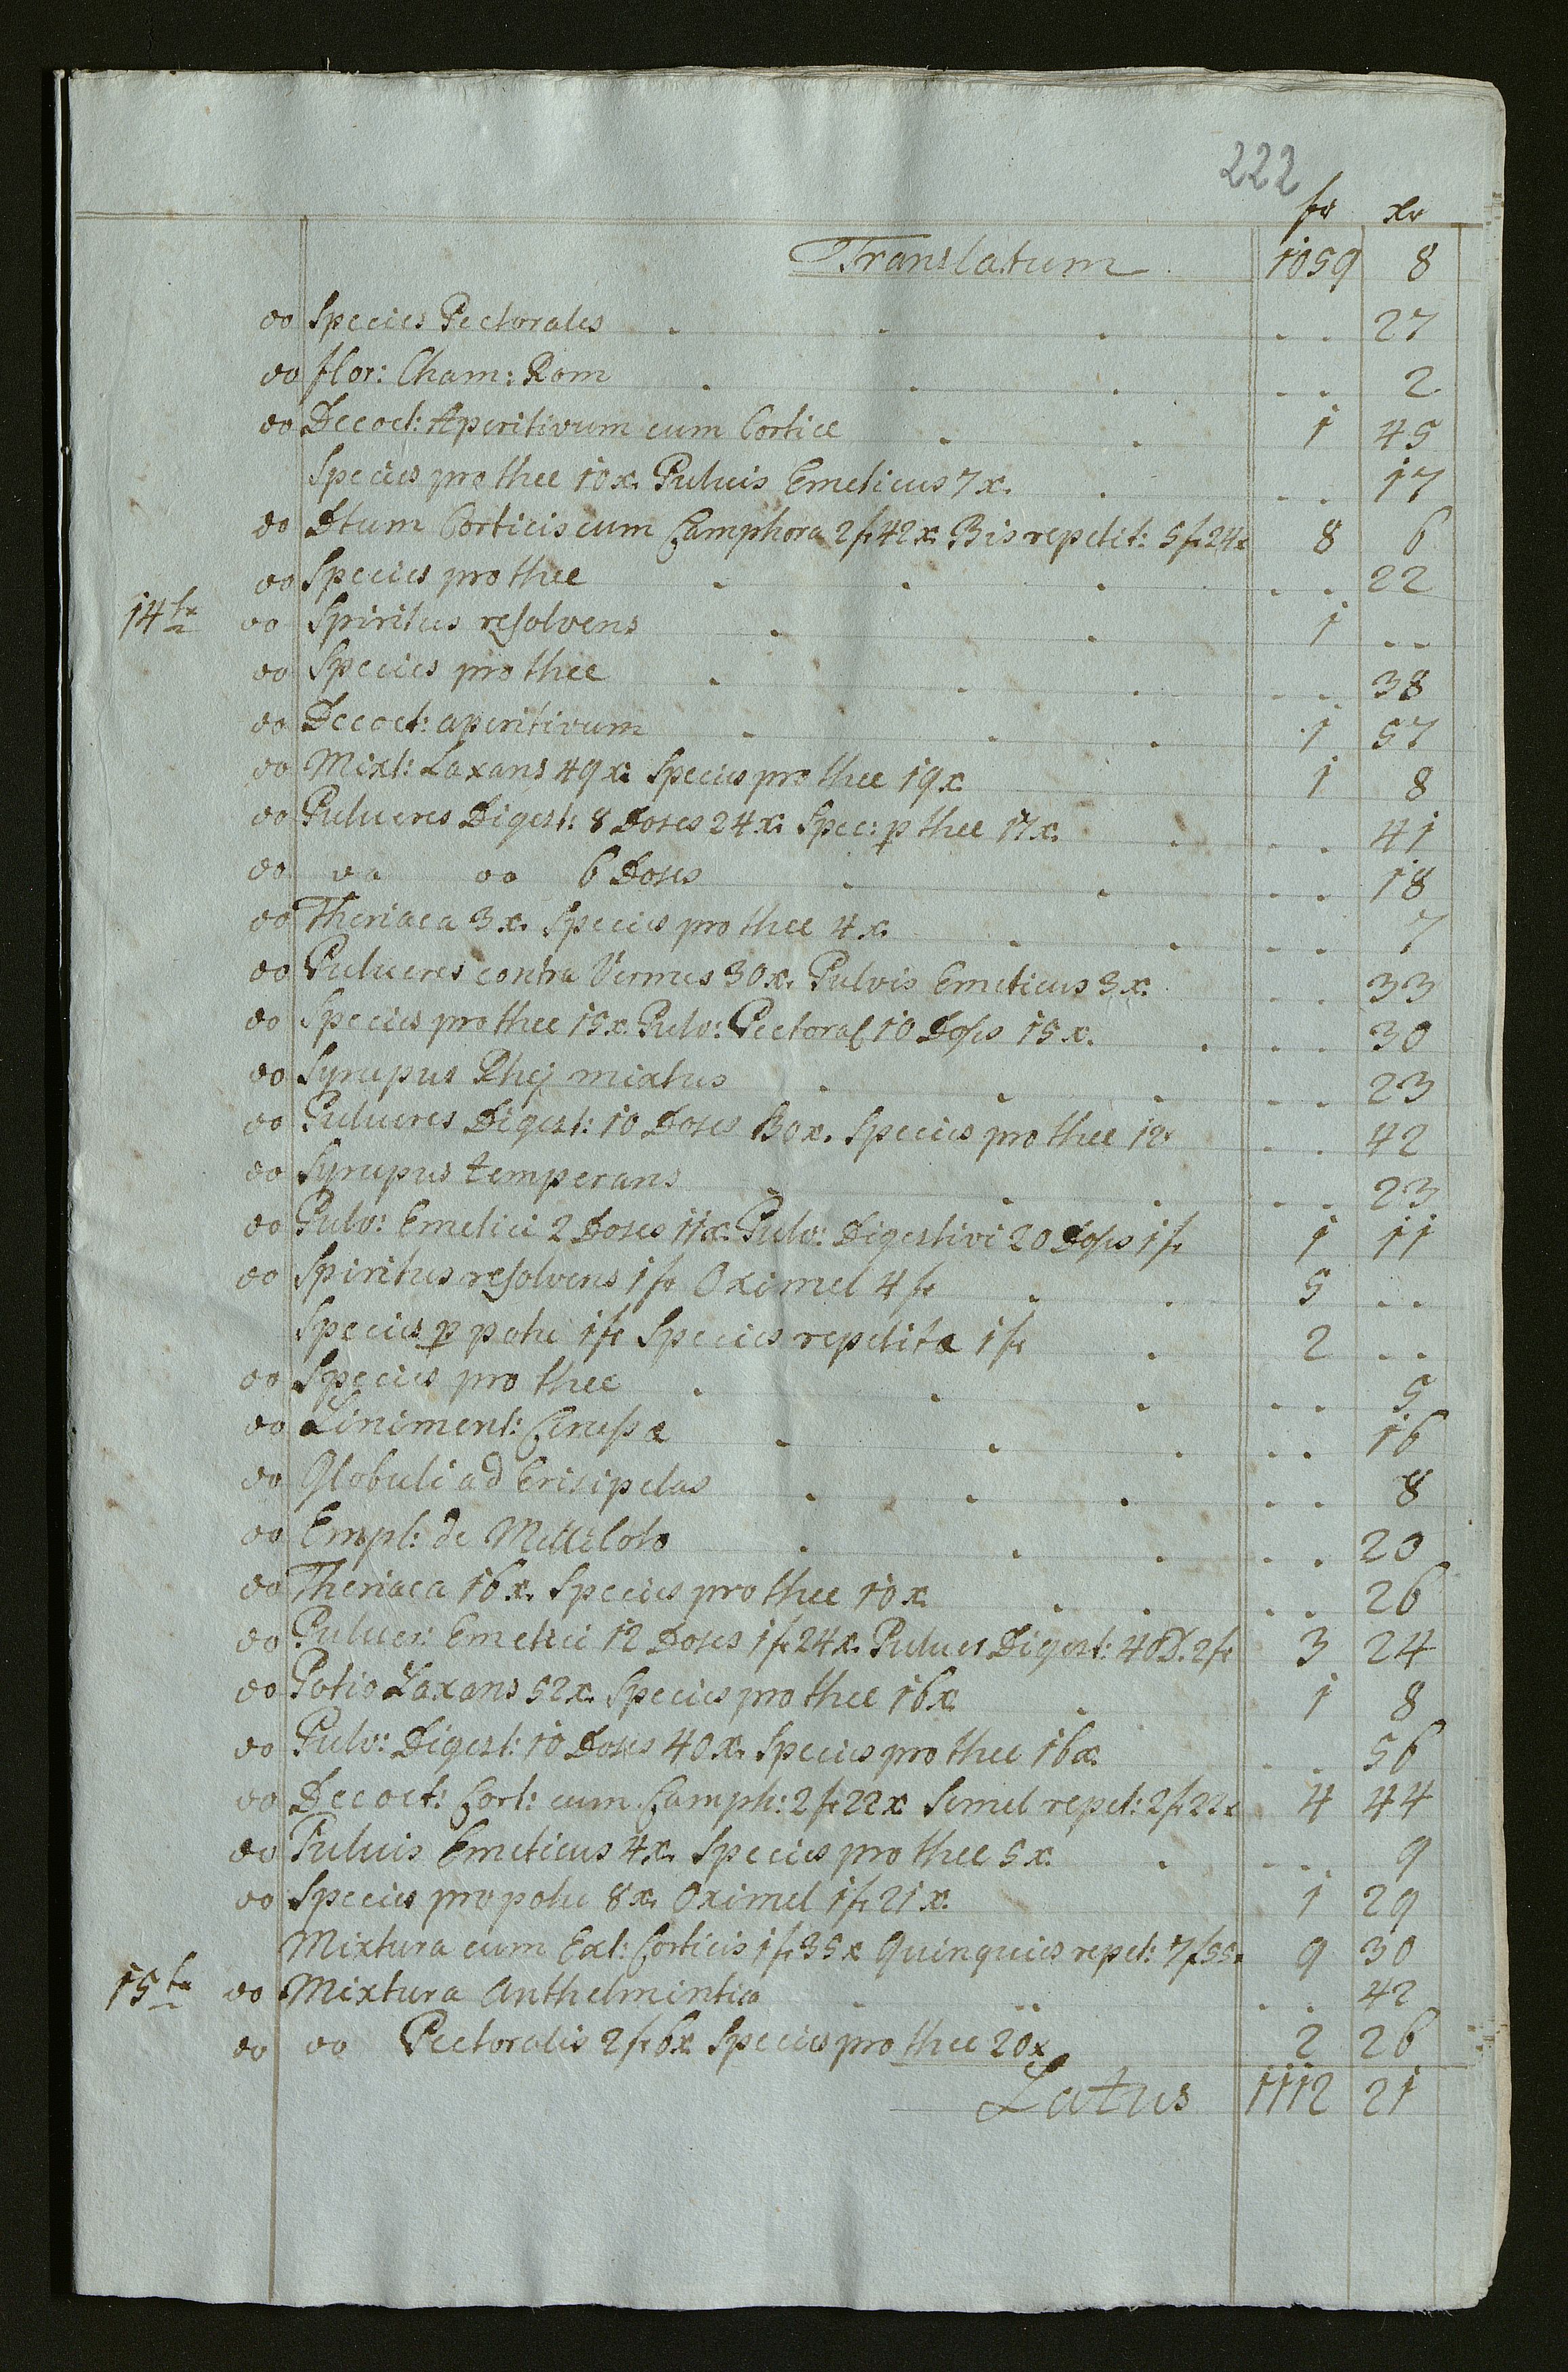 222
fr xr
Translatum 1059 8
do Species Pectorales . . . . . 27
do flor: Cham: Rom . . . . . 2
do Decoct: Aperitivum cum Cortice . . 1 45
Species pro thee 10 x. Puluis Emeticus 7 x. . . . 17
do Dtum Corticis cum Camphora 2 fr 42 x. Bis repetit: 5 fr 24 x 8 6
do Species pro thee . . . . . 22
14ta do Spiritus resolvens . . 1 ..
do Species pro thee . . . . . 38
do Decoct: aperitivum . . . 1 57
do Mixt: Laxans 49 x: Species pro thee 19 x 1 8
do Pulueres Digest: 8 Doses 24 x: Spec: p thee 17 x. . . . 41
do do do 6 Doses . . . . 18
do Theriaca 3 x. Species pro thee 4 x. . . . . 7
do Pulueres contra Vermes 30 x. Pulvis Emeticus 3 x. . . 33
do Species pro thee 15 x. Pulv: Pectoral 10 Doses 15 x. . . . 30
do Syrupus Rhej mixtus . . . . . 23
do Pulueres Digest: 10 Doses 30 x. Species pro thee 12 x . . 42
do Syrupus temperans . . . . . 23
do Pulv: Emetici 2 Doses 11 x. Pulv: Digestivi 20 Doses 1 fr 1 11
do Spiritus resolvens 1 fr Oximel 4 fr . . 5 ..
Species p potu 1 fr Species repetita 1 fr . 2 ..
do Species pro thee . . . . . 5
do Liniment: Cerussa . . . . . 16
do Globuli ad Erisipelas . . . . . 8
do Empl: de Melleloto . . . . . 20
do Theriaca 16 x. Species pro thee 10 x . . . . 26
do Pulver: Emetici 12 Doses 1 fr 24 x. Pulues Digest: 40 D. 2 fr 3 24
do Potio Laxans 52 x. Species pro thee 16 x . 1 8
do Pulv: Digest: 10 Doses 40 x. Species pro thee 16 x. . . 56
do Decoct: Cort: cum Camph: 2 fr 22 x Semel repet: 2 fr 22 x 4 44
do Puluis Emeticus 4 x. Species pro thee 5 x. . . . 9
do Species pro potu 8 x. Oximel 1 fr 21 x. 1 29
Mixtura cum Ext: Corticis 1 fr 35 x Quinquies repet: 7 f 55 x 9 30
15ta do Mixtura Anthelmintica . . . . 42
do do Pectoralis 2 fr 6 x Species pro thee 20 x 2 26
Latus 1112 21